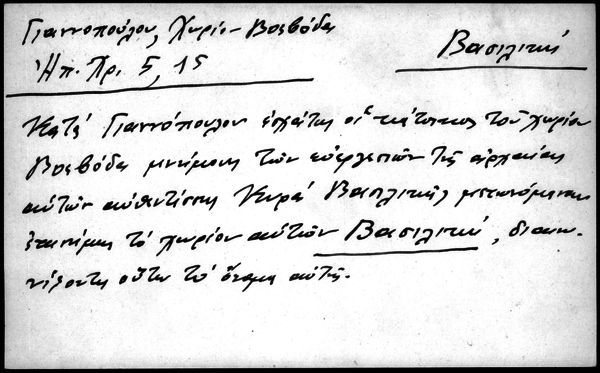 Γιαννοπούλου, Χωρίον Βοεβόδα
Βασιλική
Ἠπ. Χρ. 5, 15
Κατὰ Γιαννόπουλον οἱ κάτοικοι τοῦ χωρίου
Βοεβόδα μνήμονες τῶν εὐεργεσιῶν τῆς ἀρχαίας
αὐτῶν αὐθεντίσσης Κυρᾶ Βασιλικῆς μετωνόμασαν
ἐπωνύμως τὸ χωρίον αὐτῶν Βασιλική, διαιω-
νίζοντες οὕτω τὸ ὄνομα αὐτῆς.